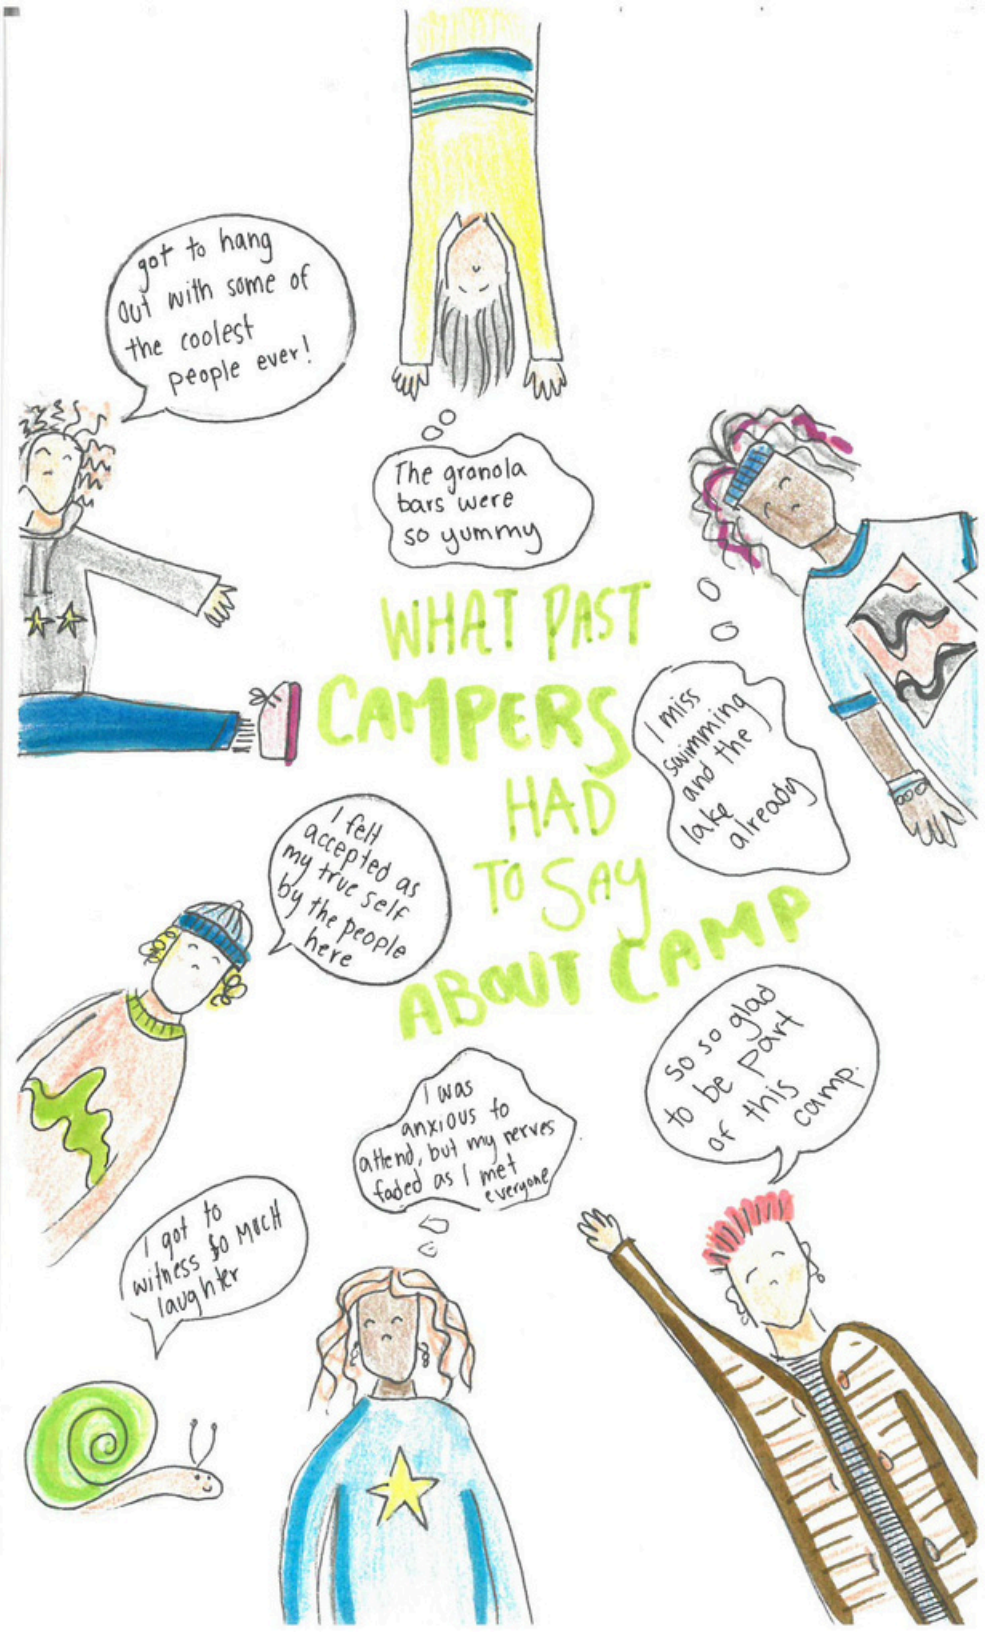 got to hang
out with some of
the coolest
people ever!
The granola
bars were
so yummy
WHAT PAST
CAMPERS
HAD
TO SAY
ABOUT CAMP
I miss
swimming
and the
lake
already
I felt
accepted as
my true self
by the people
here
so so glad
to be part
of this
camp.
I was
anxious to
attend, but my nerves
faded as I met
everyone
I got to
witness so MUCH
laughter